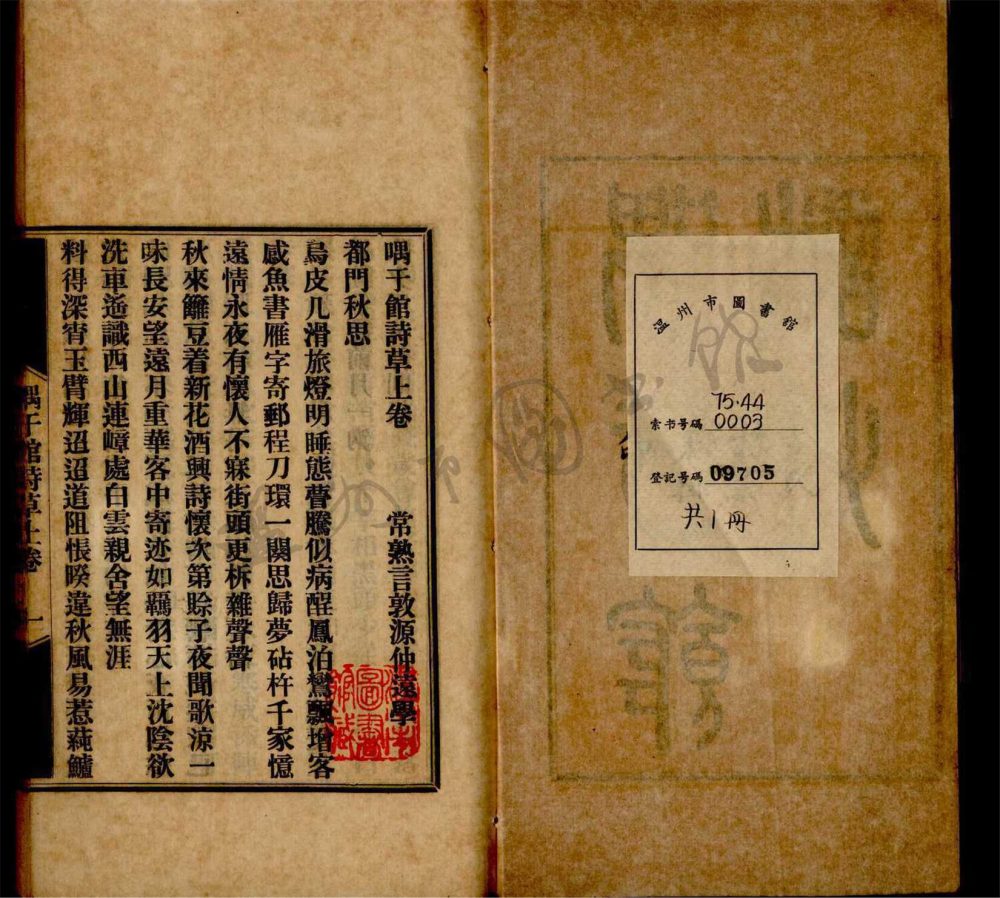 温州市圖書館
索书号碼 75·44 0003
登記号碼 09705
共1冊
喁于館詩草上卷 常熟言敦源仲遠學
都門秋思
烏皮几滑旅燈明睡態瞢騰似病醒鳳泊鸞飄增客
感魚書雁字寄郵程刀環一闋思歸夢砧杵千家憶
遠情永夜有懷人不寐街頭更柝雜聲聲
秋來籬豆着新花酒興詩懷次第賒子夜聞歌涼一
味長安望遠月重華客中寄迹如羈羽天上沈陰欲
洗車遙識西山連嶂處白雲親舍望無涯
料得深宵玉臂輝迢迢道阻悵暌違秋風易惹蒓鱸
喁于館詩草上卷 一